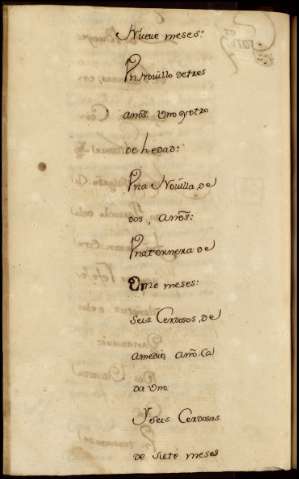 Nueve meses:
Vn novillo de tres
anos. Uno y otro
de hedad:
Vna Novilla, de
dos, anos:
Vna ternera de
Onze meses:
Seis Cerdosos, de
amedio, año, Ca
da Uno
Y seis Cerdosas
de Siete meses